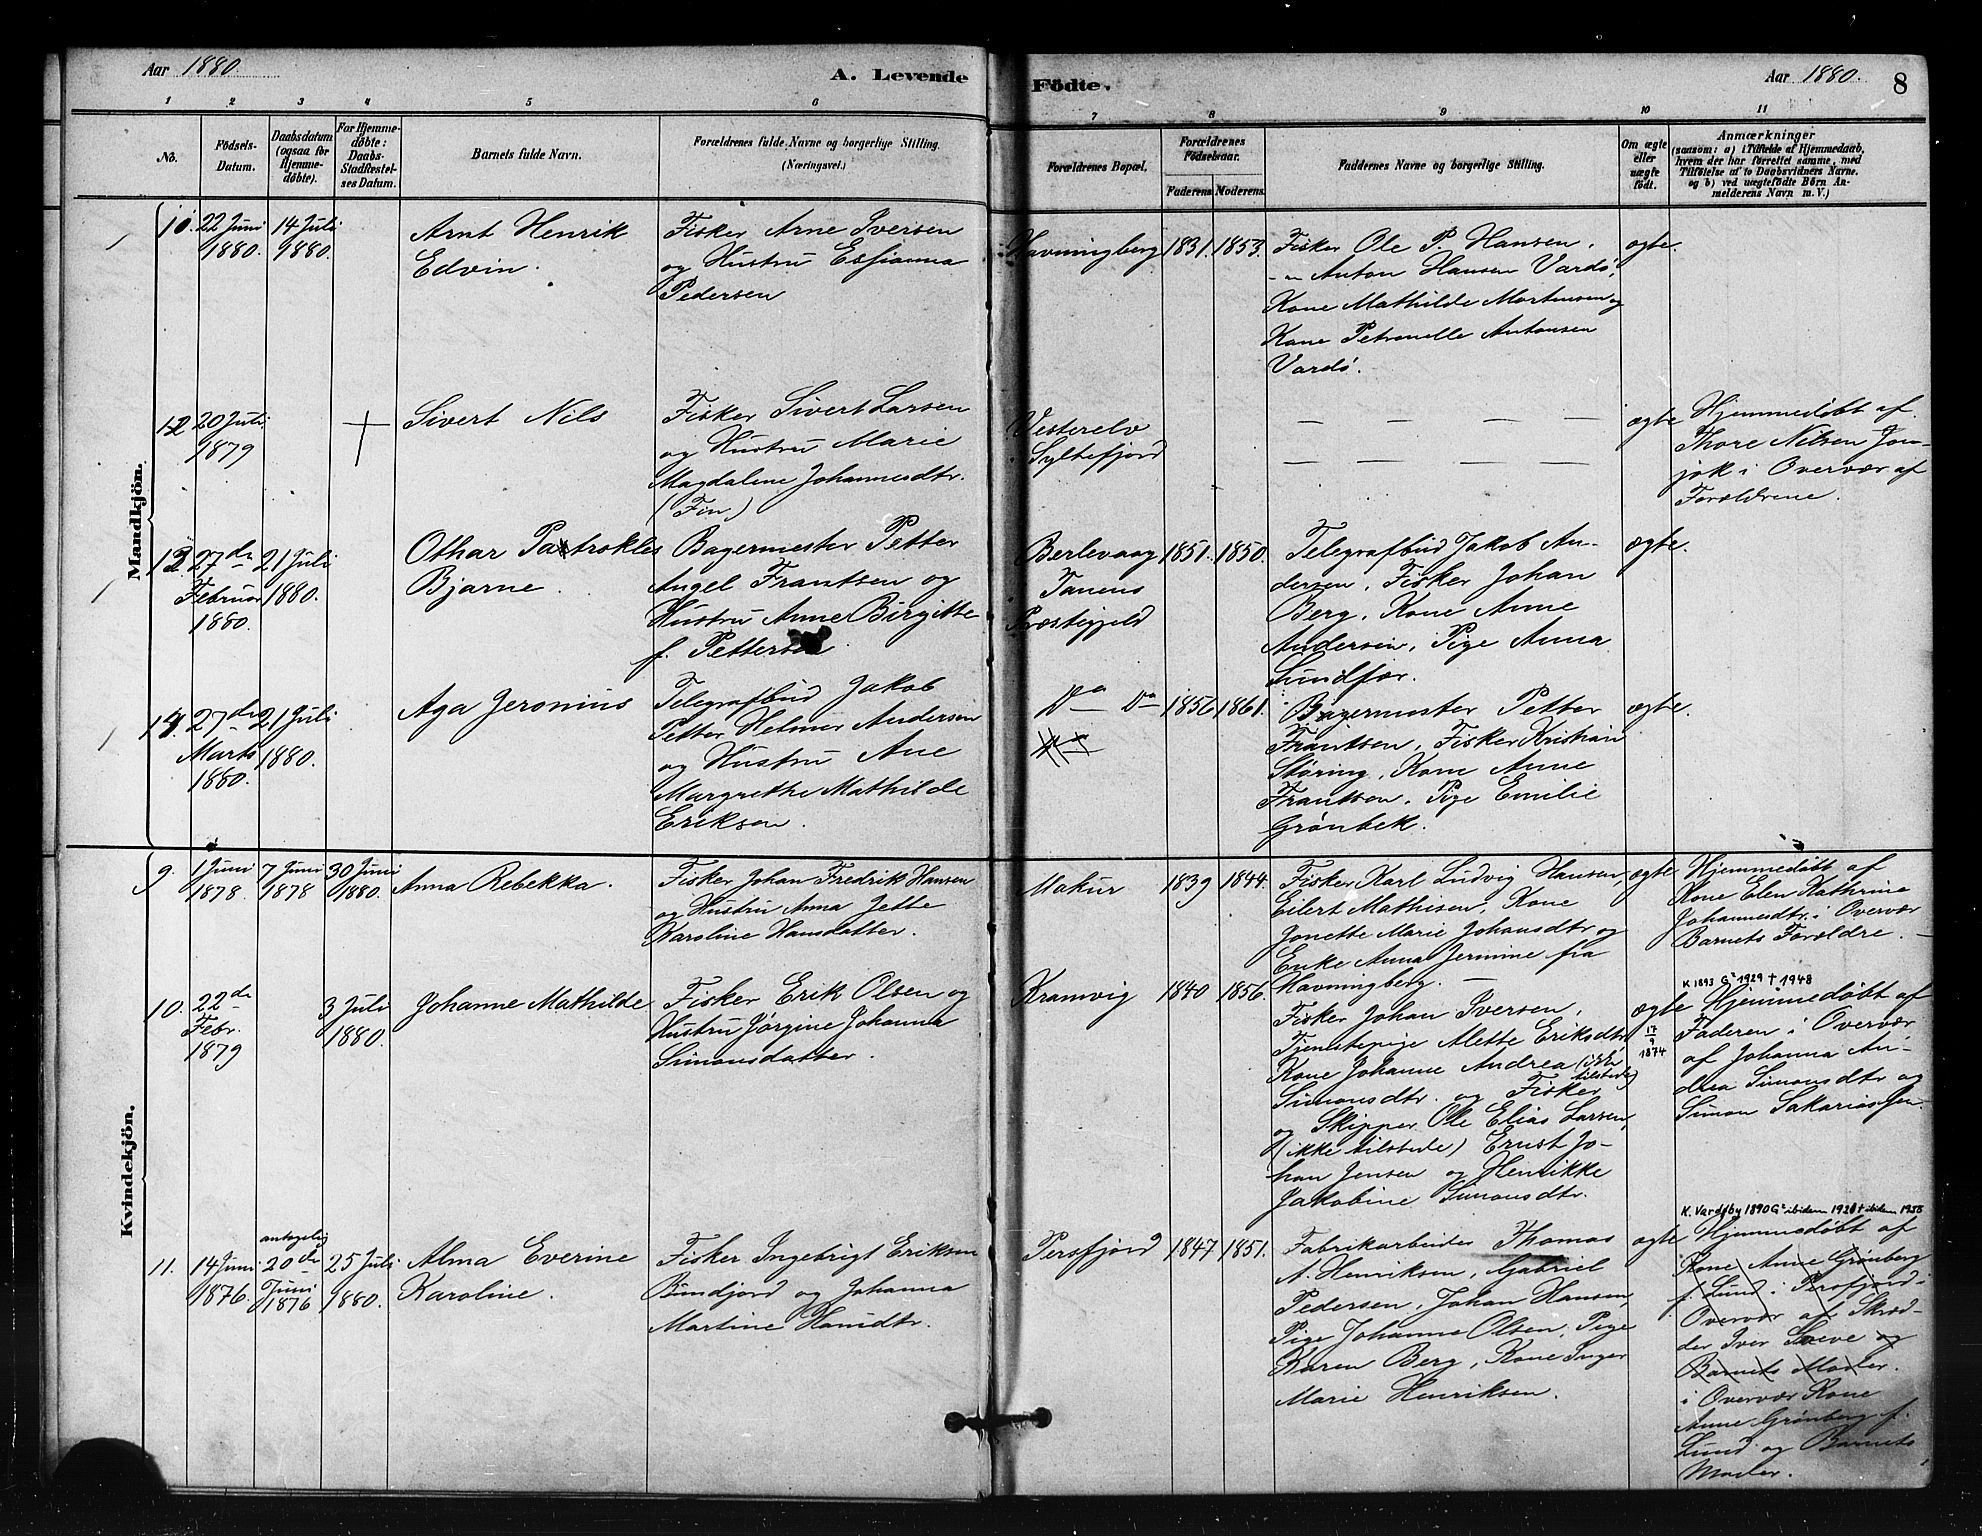 Aar 1880.
A. Levende
Födte.
Aar 1880.
8
1 2 3 4 5 6 7 8 9 10 11
No.
Födsels-
Datum.
Daabsdatum
(ogsaa for
Hjemme-
døbte).
For Hjemme-
døbte:
Daabs-
Stadfæstel-
ses Datum.
Barnets fulde Navn.
Forældrenes fulde Navne og borgerlige Stilling.
(Næringsvei.)
Forældrenes Bopæl.
Forældrenes
Födselsaar.
Faderens. Moderens.
Faddernes Navne og borgerlige Stilling.
Om ægte
eller
uægte
födt.
Anmærkninger
(saasom: a) i Tilfælde af Hjemmedaab,
hvem der har forrettet samme, med
Tilföielse af to Daabsvidners Navne.
og b) ved uægtefödte Börn An-
melderens Navn m. V.)
Mandkjön.
22 Juni
1880.
14 Juli
1880.
Arnt Henrik
Edvin.
Fisker Arne Iversen
og Hustru Esfianna
Pedersen
Havningberg
1831. 1853.
Fisker Ole P. Hansen,
-"- Anton Hansen Vardö,
Kone Mathilde Mortensen og
Kone Petronelle Antonsen
Vardö.
ægte.
12
20 Juli
1879
Sivert Nils
Fisker Sivert Larsen
og Hustru Marie
Magdalene Johannesdtr.
(Fin)
Vesterelv
Syltefjord
— — — —
— — — —
ægte
Hjemmedøbt af
Thore Nilsen Jon-
jok i Overvær af
Forældrene.
13
27de
Februar
1880.
21 Juli
1880.
Othar Patrokles
Bjarne.
Bagermester Petter
Angel Frantsen og
Hustru Anne Birgitte
f. Pettersen.
Berlevaag
Tanens
Præstegjeld
1851. 1850.
Telegrafbud Jakob An-
dersen, Fisker Johan
Berg, Kone Anne
Andersen, Pige Anna
Sundfær.
ægte.
14
27de
Marts
1880.
21 Juli
1880.
Aga Jeronius
Telegrafbud Jakob
Petter Helmer Andersen
og Hustru Ane
Margrethe Mathilde
Eriksen.
Do Do
1856 1861.
Bagermester Petter
Frantsen, Fisker Kristian
Støring, Kone Anne
Frantsen, Pige Emilie
Grønbek.
ægte.
Kvindekjön.
9.
1 Juni
1878.
7 Juni
1878
30 Juni
1880.
Anna Rebekka.
Fisker Johan Fredrik Hansen
og Hustru Anna Jette
Karoline Hansdatter.
Makur
1839 1844.
Fisker Karl Ludvig Hansen,
Eilert Mathisen, Kone
Jonette Marie Johansdtr og
Enke Anna Jermine fra
Havningberg. —
ægte
Hjemmedøbt af
Kone Elen Kathrine
Johannesdtr. i Overvær
Barnets Forældre. —
10.
22de
Febr.
1879
3 Juli
1880.
Johanne Mathilde
Fisker Erik Olsen og
Hustru Jørgine Johanna
Simonsdatter.
Kramvig
1840 1856.
Fisker Johan Iversen,
Tjenestepige Alette Eriksdtr
Kone Johanne Andrea (ikke
tilstede)
Simonsdtr. og Fisker
og Skipper Ole Elias Larsen,
(ikke tilstede) Ernst Jo-
han Jensen og Henrikke
Jakobine Simonsdtr.
ægte
17
9
1874
K 1893 G² 1929 † 1948
Hjemmedøbt af
Faderen i Overvær
af Johanna An-
drea Simonsdtr og
Simon Sakariassen.
11.
14 Juni
1876.
antagelig
20de
Juni
1876
25 Juli
1880.
Alma Everine
Karoline.
Fisker Ingebrigt Eriksen
Bindjord og Johanna
Martine Hansdtr.
Persfjord
1847 1851.
Fabrikarbeider Thomas
A. Henriksen, Gabriel
Pedersen, Johan Hansen,
Pige Johanne Olsen, Pige
Karen Berg, Kone Inger
Marie Henriksen.
ægte
K. Vardøby 1890 G² ibidem 1926 † ibidem 1958
Hjemmedøbt af
Kone Anne Grønberg
f. Lund i Persfjord i
Overvær af Skræd-
der Iver Sneve og
Barnets Moder.
i Overvær Kone
Anne Grønberg f.
Lund og Barnets
Moder.